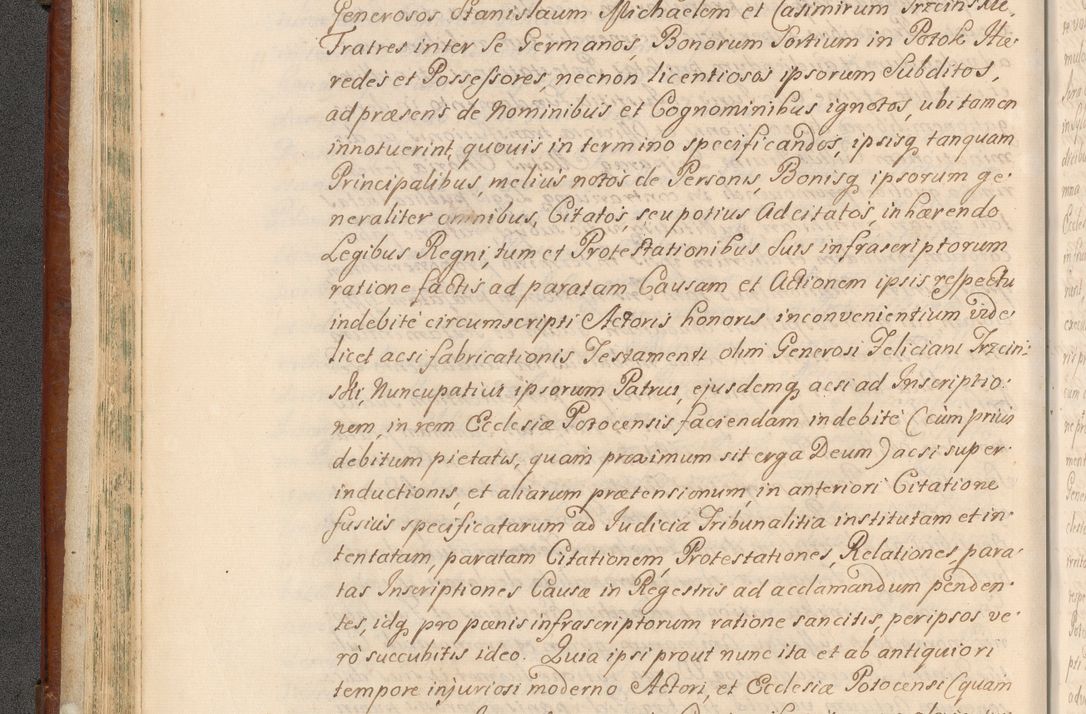 Generosos Stanislaum Michaelem et Casimirum Trzcinskie
Fratres inter se Germanos, Bonorum Sortium in Potok Hæ-
redes et Possessores, necnon licentiosos ipsorum Subditos,
ad præsens de Nominibus et Cognominibus ignotos, ubi tamen
innotuerint, quovis in termino specificandos, ipsisq tanquam
Principalibus, melius notos de Personis, Bonisq ipsorum ge-
neraliter omnibus, Citatos, seu potius Adcitatos, inhærendo
Legibus Regni, tum et Protestationibus Suis infrascriptorum
ratione factis ad paratam Causam et Actionem ipsis respectu
indebite circumscripti Actoris honoris inconvenientium vide-
licet acsi fabricationis Testamenti olim Generosi Feliciani Trzcin-
ski, Nuncupativi ipsorum Patrui, ejusdemq acsi ad Inscriptio-
nem, in rem Ecclesiæ Potocensis faciendam indebite (cum prius
debitum pietatis, quam proximum sit erga Deum) acsi super-
inductionis, et aliarum prætensionum, in anteriori Citatione
fusius specificatarum ad Judicia Tribunalitia institutam et in-
tentatam, paratam Citationem, Protestationes, Relationes, para-
tas Inscriptiones Causæ in Regestris ad acclamandum penden-
tes, idq pro pænis infrascriptorum ratione sancitis, per ipsos ve-
rò succubitis ideo. Quia ipsi prout nunc ita et ab antiquiori
tempore injuriosi moderno Actori, et Ecclesiæ Potocensi (quam